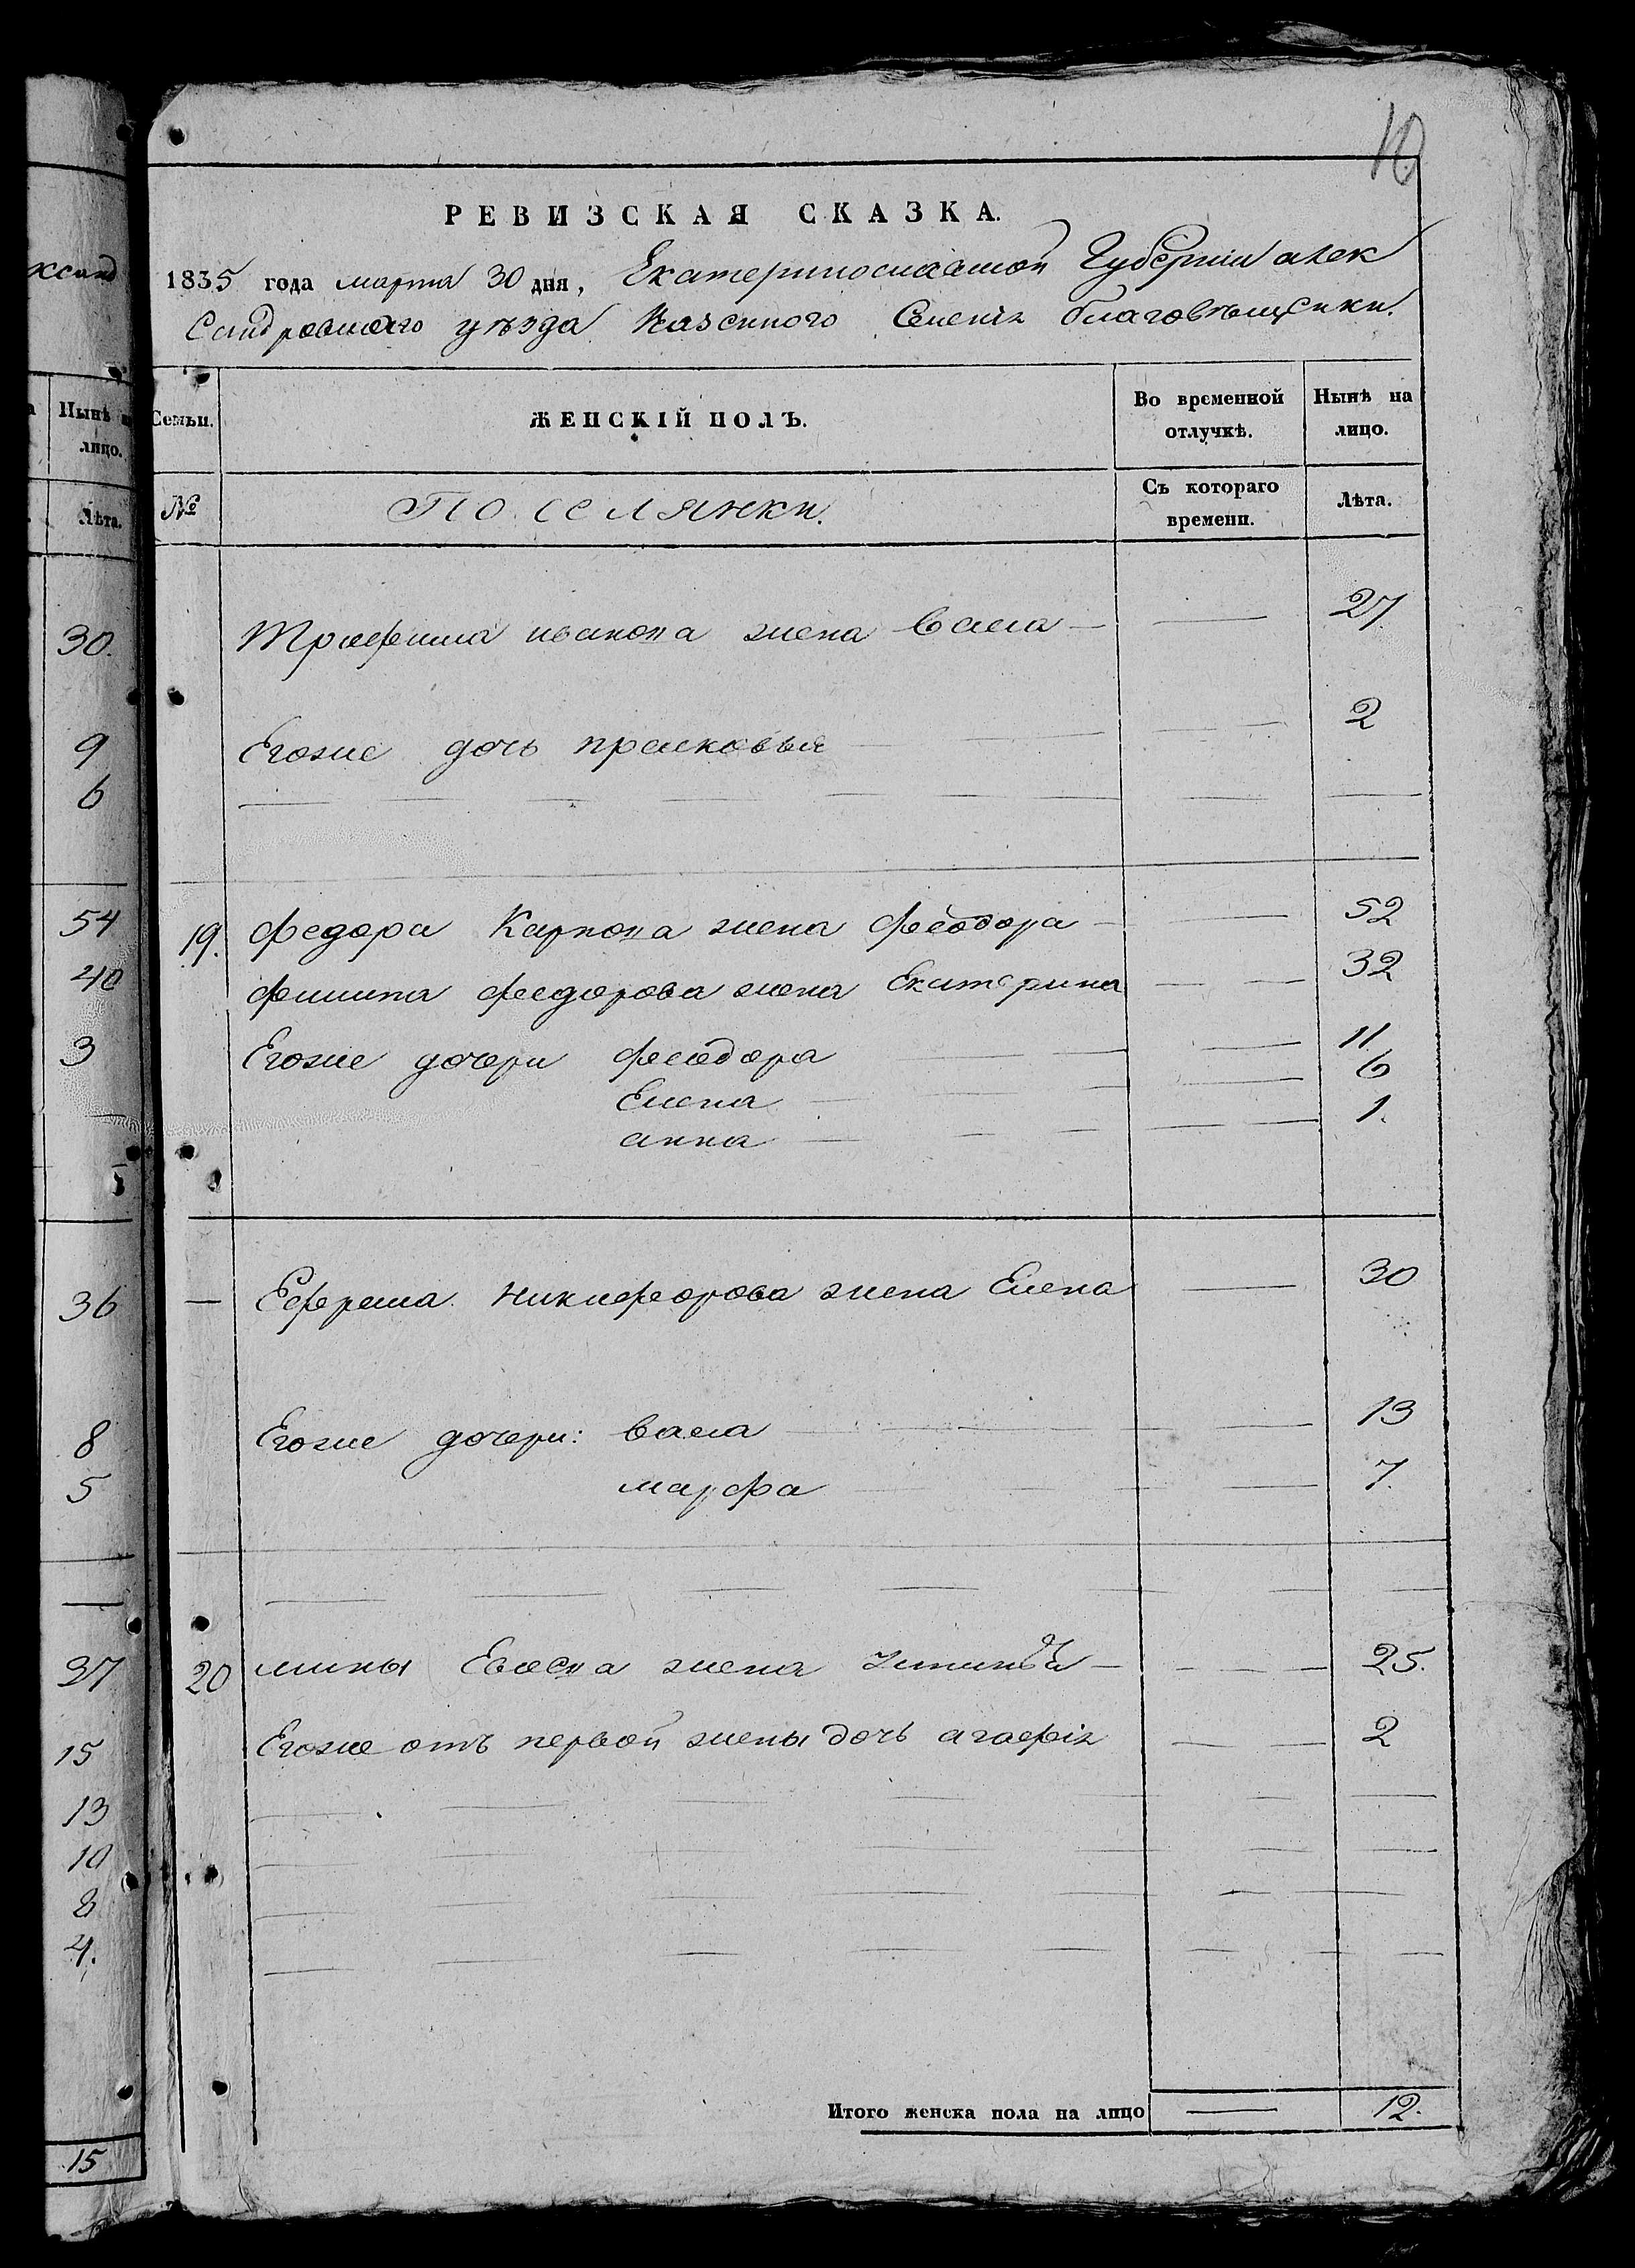 ксанд
Нынѣ
лицо.
Лѣта.
30.
9
6
54
40
3
36
8
5
37
15
13
10
8
4.
15
10
РЕВИЗСКАЯ СКАЗКА.
1835 года марта 30 дня, Екатеринославской Губерніи алек
сандровскаго уѣзда казенного Селенія благовѣщенки.
Семьи. ЖЕНСКІЙ ПОЛЪ. Во временной отлучкѣ. Нынѣ на лицо.
№ Поселянки. Съ котораго времени. Лѣта.
Трофима иванова жена васса — 27
Егоже дочь прасковья 2
19. федора Карпова жена феодора — 52
филипа федорова жена Екатерина 32
Егоже дочери феодора 11
Елена 6
анна 1.
— Ефрема никифорова жена Елена 30
Егоже дочери: васса 13
марфа 7.
20 мины жена — 25.
Егоже отъ первой жены дочь агафія 2
Итого женска пола на лицо — 12.